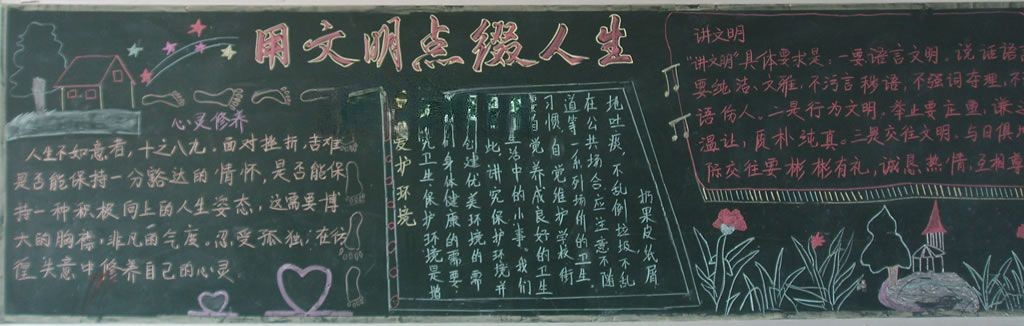 用文明点缀人生
心灵修养
人生不如意者，十之八九。面对挫折，苦难
是否能保持一分豁达的情怀，是否能保
持一种积极向上的人生姿态，这需要博
大的胸襟，非凡的气度。忍受孤独；在彷
徨失意中修养自己的心灵
爱护环境
讲究卫生、保护环境是指
们身体健康的需要，
创建优美环境的需
此，讲究保护环境并
生活中的小事。我们
要自觉养成良好的卫生
习惯，自觉维护学校街
道等一系列场所的卫生。
在公共场合，应注意不随
地吐痰，不乱倒垃圾不乱
扔果皮纸屑
讲文明
"讲文明"具体要求是：一要语言文明。说话语言
要纯洁、文雅，不污言秽语，不强词夺理，不
语伤人。二是行为文明，举止要庄重，谦
温让，质朴纯真。三是交往文明。与日俱
际交往要彬彬有礼，诚恳热情，互相尊